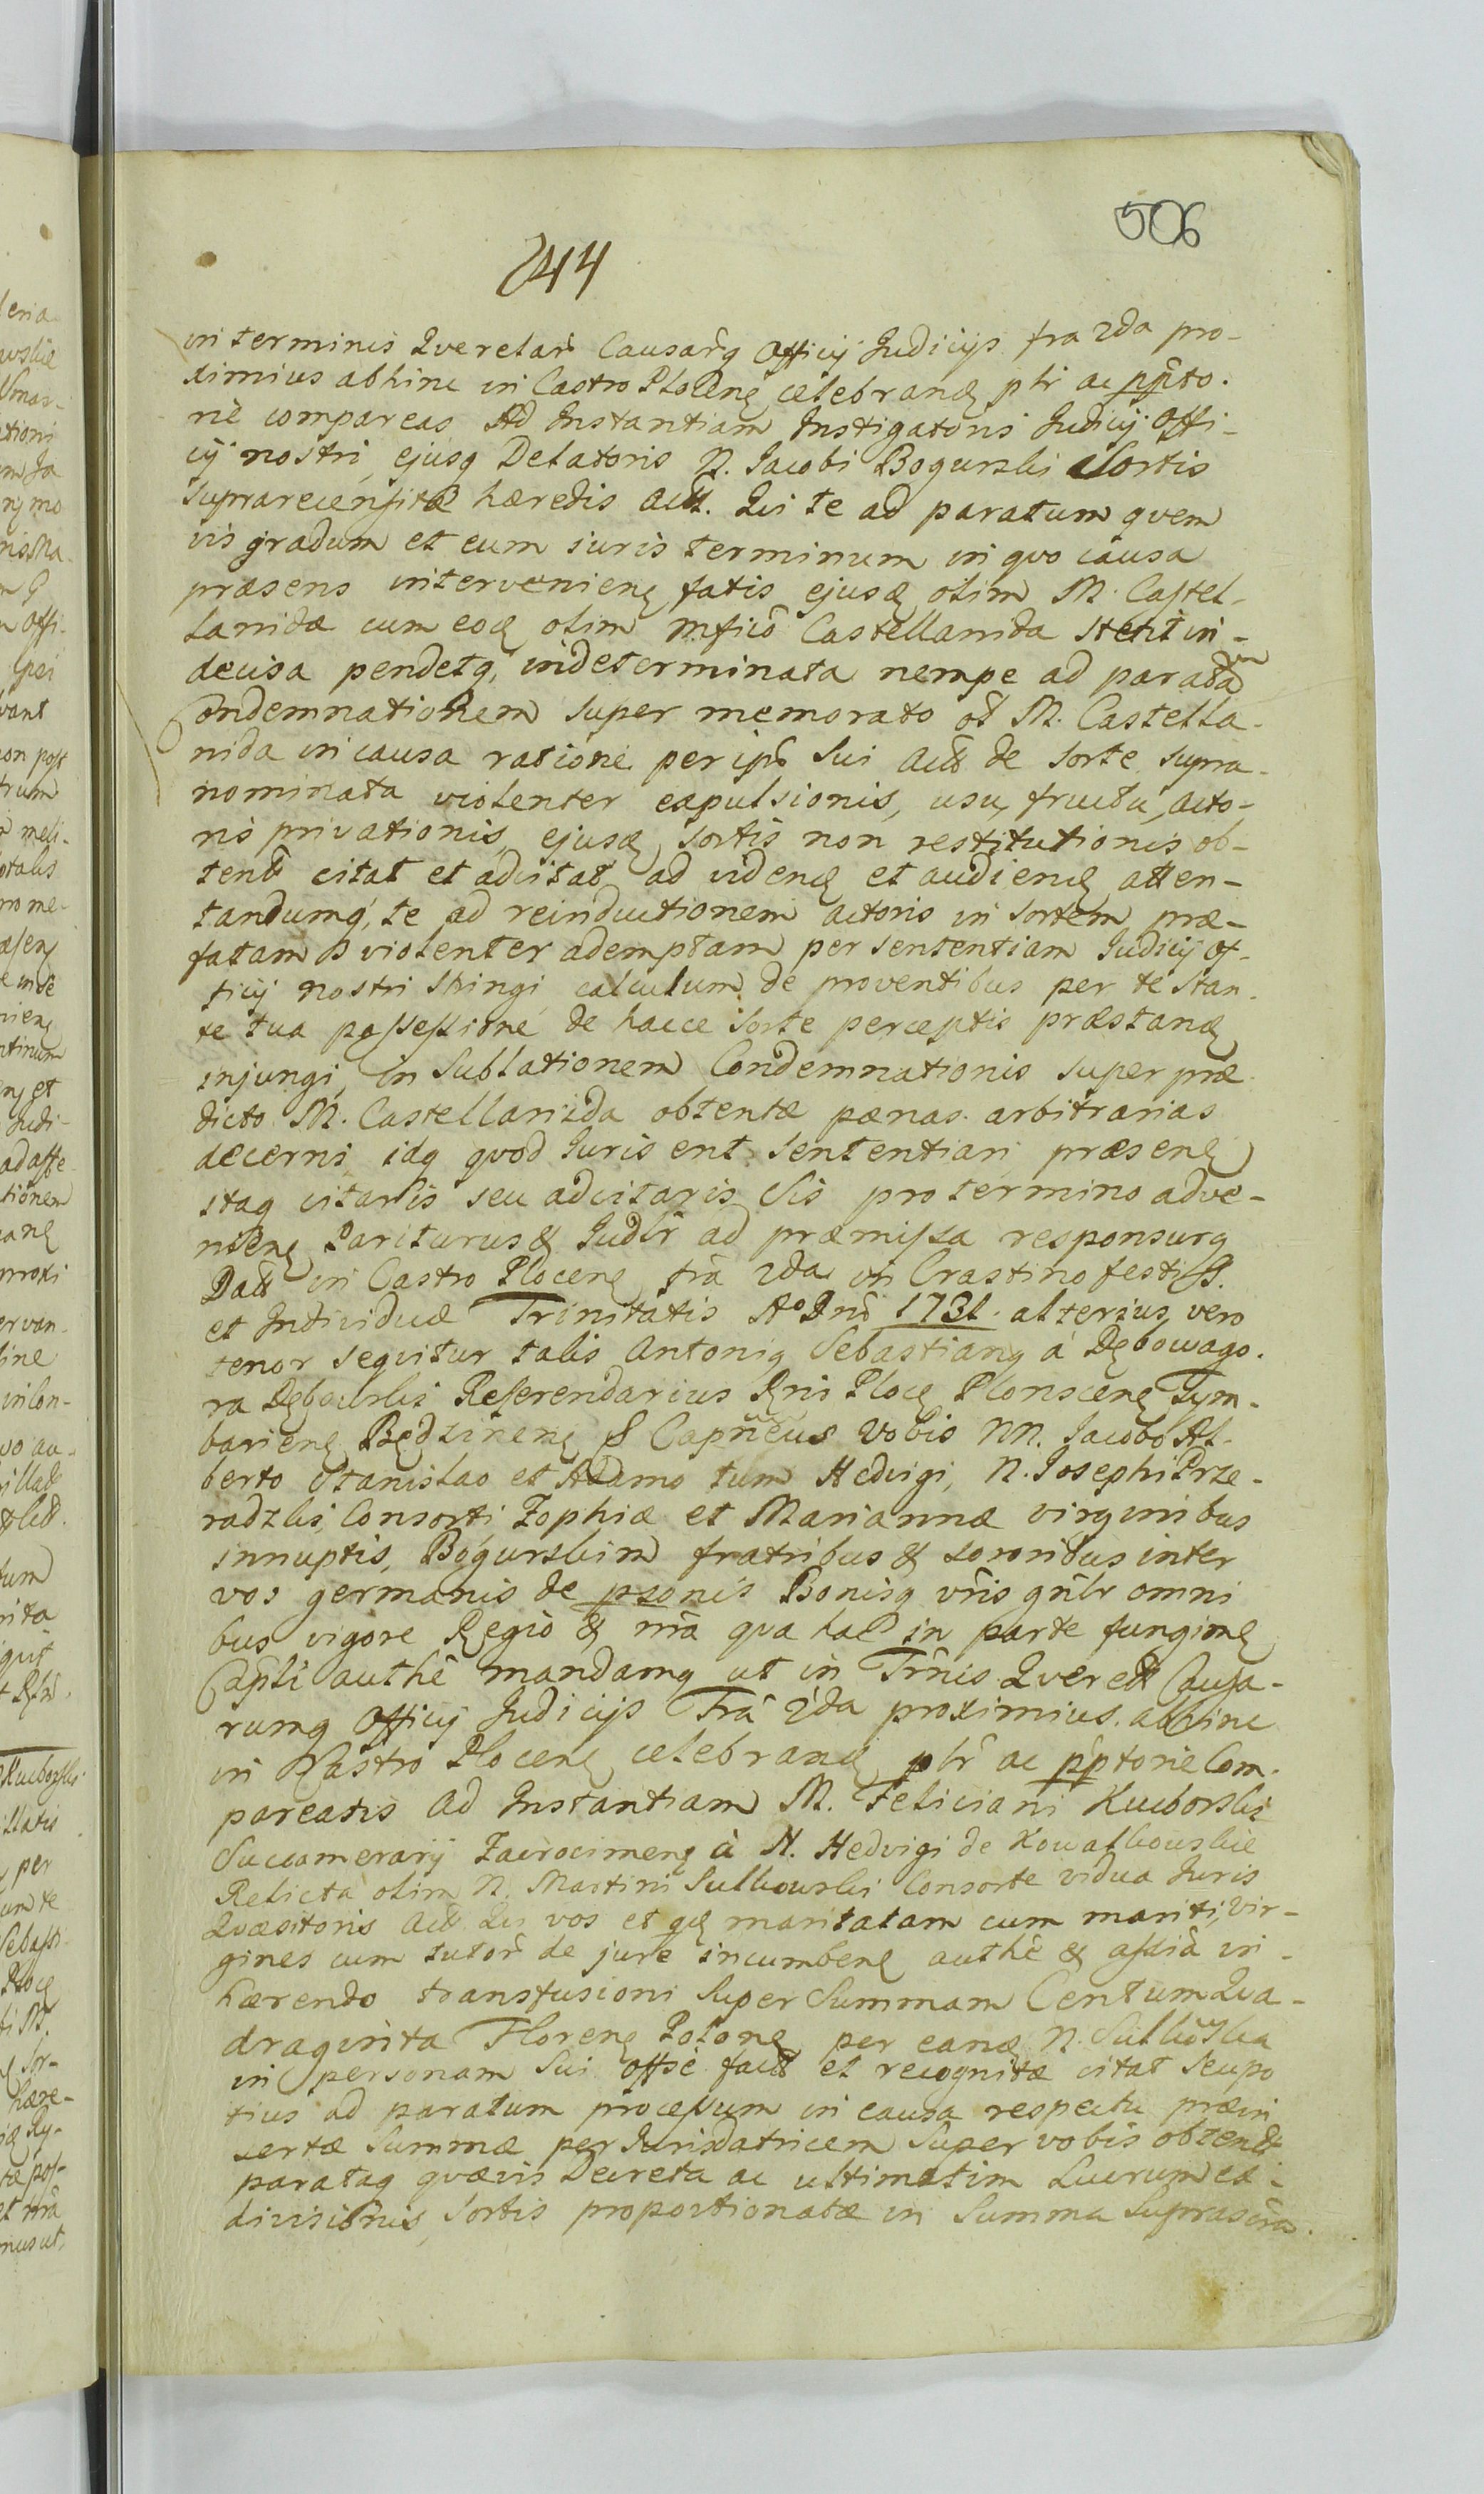 506
244
in terminis Querelar Causarq Officij Judicijs fra 2da pro-
ximius abhinc in Castro Plocenę celebrandę pltr ac ppto-
riè compareas Ad Instantiam Instigatoris Judicij Offi-
cij nostri ejusq Delatoris N. Jacobi Bogurski Sortis
suprarecensitæ hæredis act. Qui te ad paratum quem
vis gradum et eum juris terminum in quo causa
præsens intervenienę fatis ejusdę olim M. Castel-
lanidæ cum eodę olim mfico Castellanida stetit in-
decisa pendetq, indeterminata nempe ad paratam
Condemnationem super memorato ol M. Castella-
nida in causa ratione per ipm sui act de sorte supra-
nominata violenter expulsionis, usu, fructu, acto-
ris privationis, ejusdę sortis non restitutionis ob-
tent citat et adcitat ad videndę et audiendę atten-
tandumq, te ad reinductionem actoris in sortem præ-
fatam violenter ademptam per sententiam Judicij of-
ficij nostri stringi calculum de proventibus per te stan-
te tua possessione de hacce sorte perceptis præstandę
injungi, in sublationem Condemnationis super præ-
dicto M. Castellanida obtentæ pænas arbitrarias
decerni idq quod Juris erit sententiari præsenę
itaq citaris seu adcitaris sis pro termino adve-
nienę Pariturus & Judlr ad præmissa responsurq
Dat in Castro Plocenę fra 2da in Crastino festi S.
et Individuæ Trinitatis Ao Dni 1731. alterius vero
tenor sequitur talis Antoniq Sebastianq à Dębowago-
ra Dębowski Referendarius Rni Plocę Plonscenę Tym-
barienę Będzinenę S Capneus Vobis NN. Jacobo Al-
berto Stanislao et Adamo tum Hedvigi, N. Josephi Prze-
radzki Consorti Zophiæ et Mariannæ virginibus
innuptis, Bogurskim fratribus & sororibus inter
vos germanis de psonis Bonisq vris gnlr omni
bus vigore Regiò & nra qua hac in parte fungimę
Captli authê mandamq ut in Trnis Querel Causa-
rumq Officij Judicijs Fra 2da proximius abhinc
in Castro Plocenę celebrandę pltr ac pptorie Com-
pareatis Ad Instantiam M. Feliciani Kuiborski
Succamerarij Zacrocimenę à N. Hedvigi de Kowalkowskie
Relicta olim N. Martini Sulkowski Consorte vidua Juris
Quæsitoris Act Qui vos et qdę maritatam cum mariti, vir-
gines cum tutor de jure incumbenę authê & assia in-
hærendo transfusioni super Summam Centum Qua-
draginta Florenę Polonę per eandę N. Sulkoska
in personam sui offse fact et recognitæ citat seu po
tius ad paratum processum in causa respectu præin
sertæ Summæ per Jurisdatricem super vobis obtent
parataq quævis Decreta ac ultimatim Lucrum ex-
divisionis sortis proportionatæ in Summa suprascra